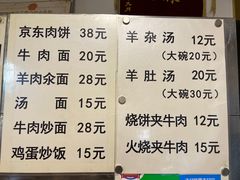 京东肉饼 38元
牛肉面 20元
羊肉汆面 28元
汤面 15元
牛肉炒面 28元
鸡蛋炒饭 15元
羊杂汤 12元
(大碗20元)
羊肚汤 20元
(大碗30元)
烧饼夹牛肉 12元
火烧夹牛肉 15元